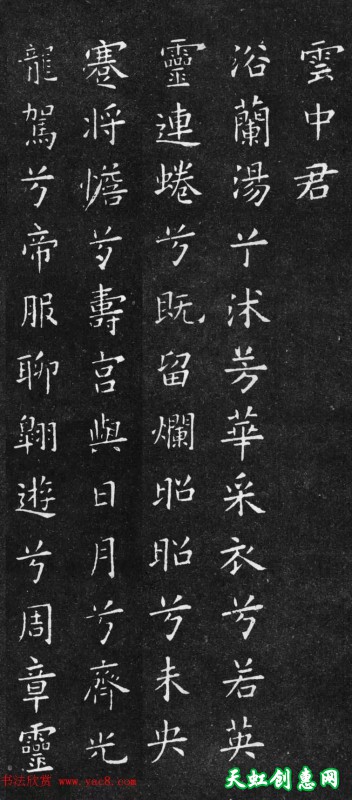 雲中君
浴蘭湯兮沐芳華采衣兮若英
靈連蜷兮既留爛昭昭兮未央
蹇将憺兮壽宮與日月兮齊光
龍駕兮帝服聊翱遊兮周章靈
书法欣赏 www.yac8.com
天虹创惠网